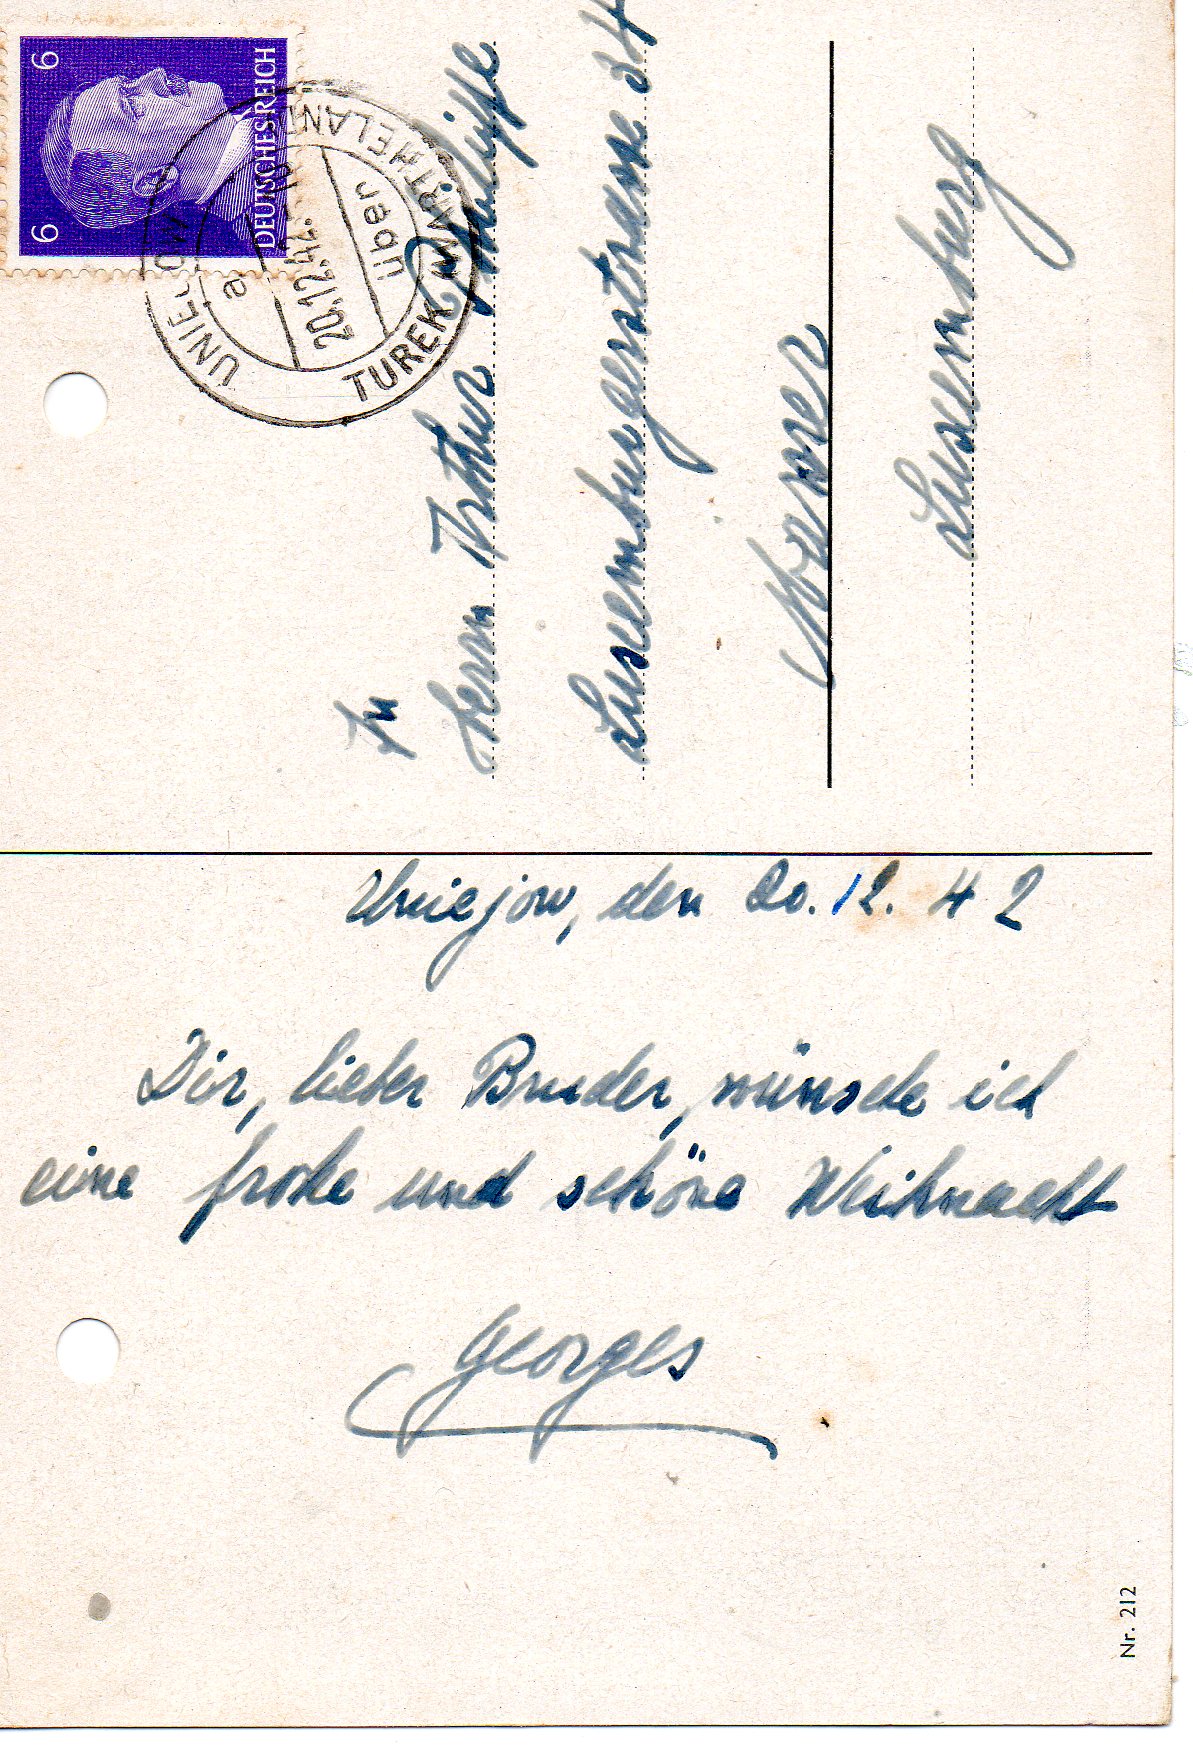 6 6
DEUTSCHES REICH
UNIEJOW
über
TUREK (WARTHELAND)
a
20.12.42
Herrn Arthur
Luxemburgerstrasse 34
Mamer
Luxemburg
Uniejow, den 20.12.42
Dir, lieber Bruder, wünsche ich
eine frohe und schöne Weihnacht
Georges
Nr. 212